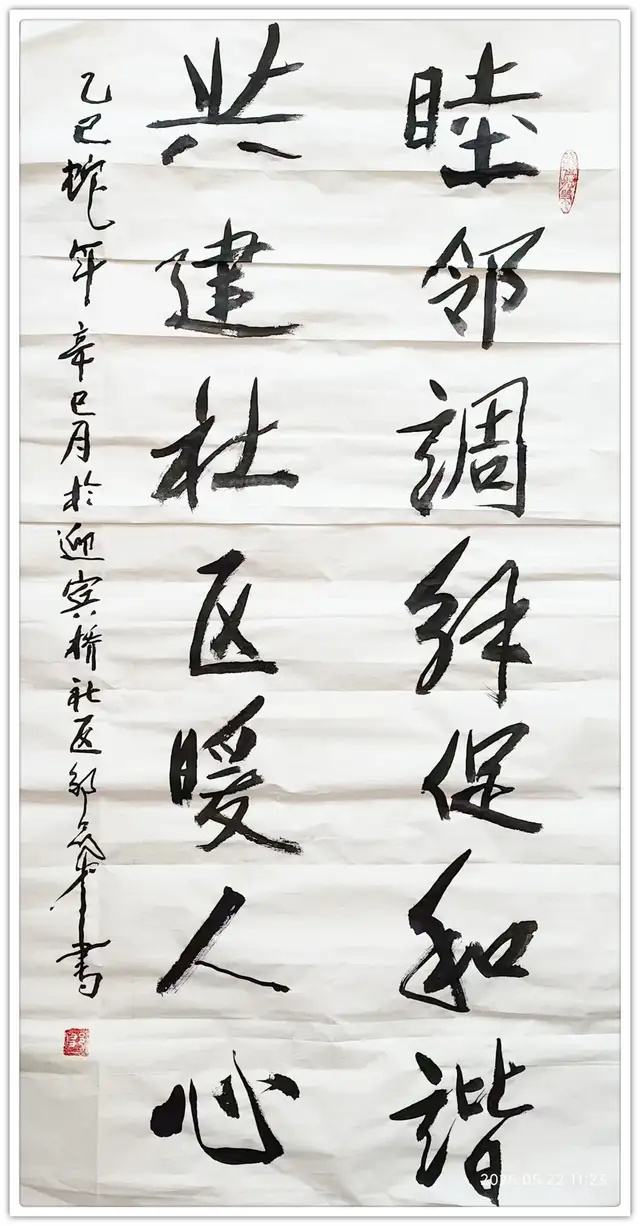 睦邻調解促和諧
共建社区暖人心
乙巳蛇年辛巳月於迎宾橋社区邹書
2025.05.22 11:23